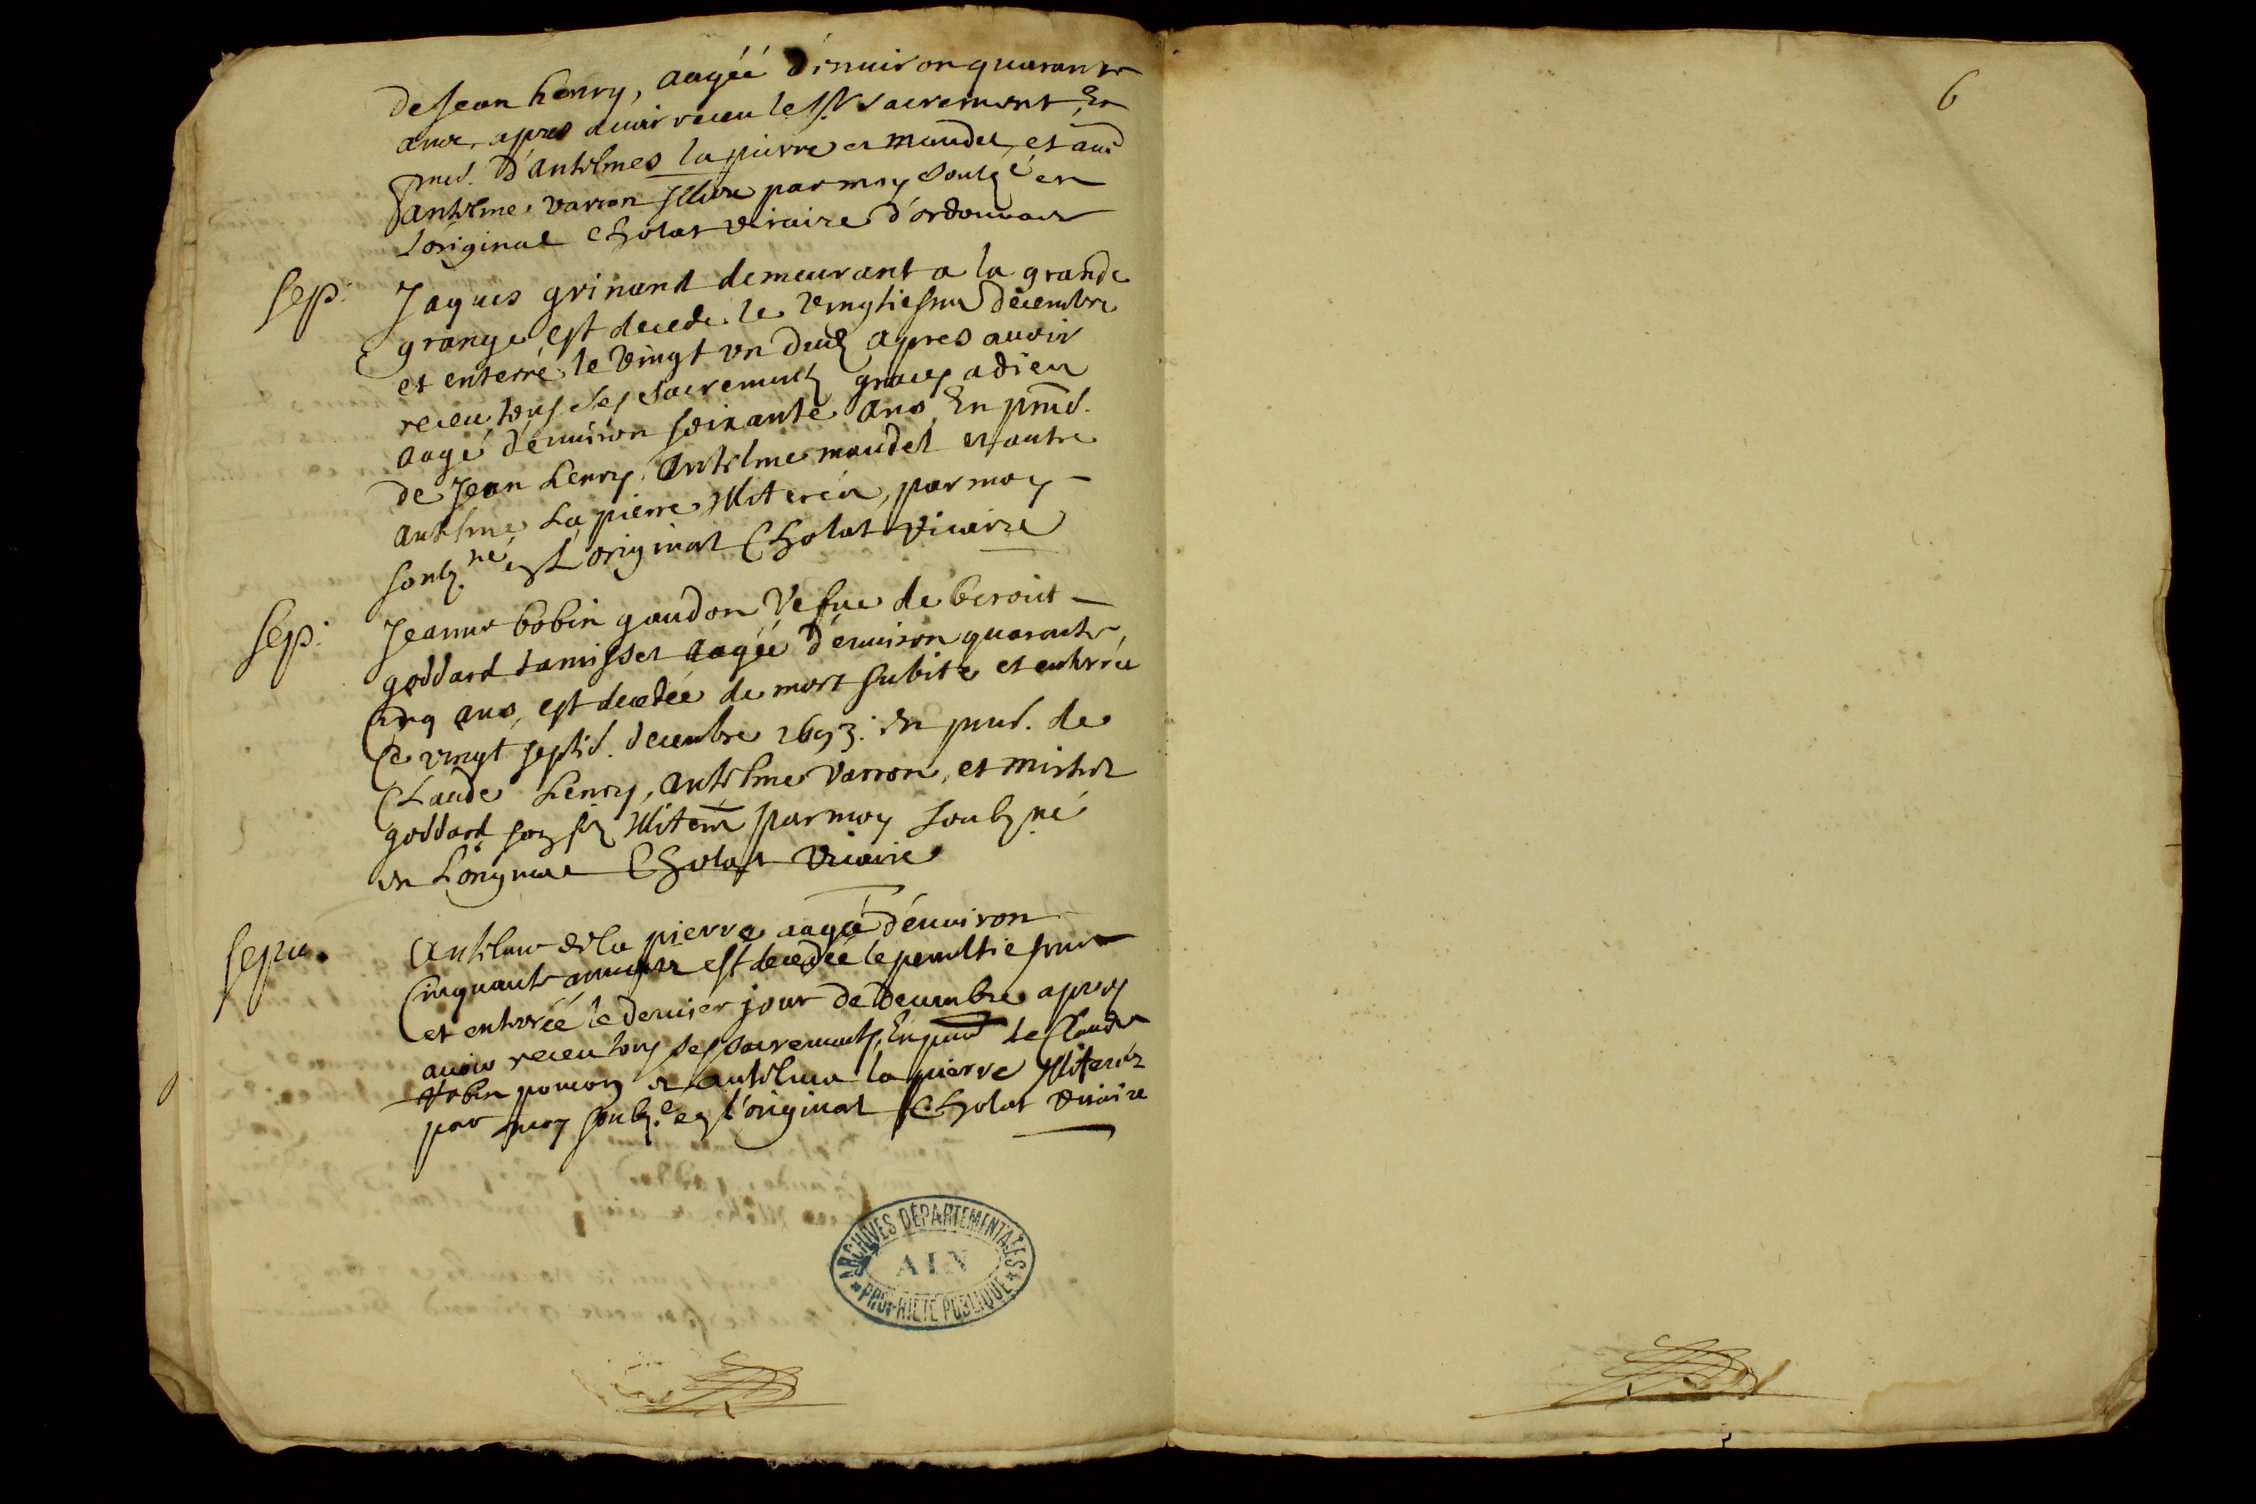 de Jean henry, aagéé d'enuiron quarante
ans, apres auoir receu le St sacrement En
pnce. d'antelmes la pierre et mandet, et
antelme varron par moy soubzé en
l'original Cholat vicaire d'ordonnance
6
sep: Jaques grinand demeurant a la grande
grange est decede le vingtiesme decembre
et enterré le vingt vn dud apres auoir
receu tous ses sacrements graces a dieu
aagé d'enuiron soixante ans En pnce.
de Jean henry, Antelme maudet et autre
antelme la pierre Illiterés, par moy
soubz.né en L'original Cholat vicaire
Sep: Jeanne bobin gaudon vefue de benoit
goddard aagéé d'enuiron quarante
Cinq ans, est decedéé de mort subite et enterréé
le vingt septie. decembre 1693: En pnce. de
Claude henry, antelme varron, et michel
goddard son fiz Illiterés par moy Soubzné
en L'original Cholat vicaire
sepu. Antelme de la pierre aagéé d'enuiron
Cinquante est decedéé le penultiesme
et enterréé le dernier jour de decembre apres
auoir receu tous ses sacrements, En pnce de Claude
et antelme la pierre Illiterés
par moy soubz.é en l'original Cholat vicaire
ARCHIVES DÉPARTEMENTALES
AIN
PROPRIÉTÉ PUBLIQUE